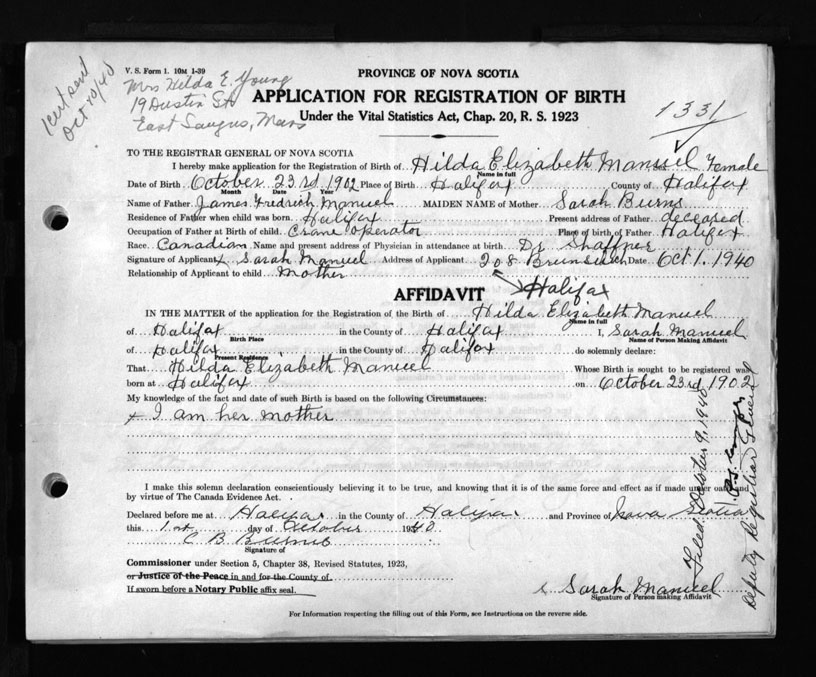 V. S. Form 1. 10M 1-39
Cert sent
Oct 10/40
Mrs Hilda E. Young
19 Dustin St
East Saugus, Mass
PROVINCE OF NOVA SCOTIA
APPLICATION FOR REGISTRATION OF BIRTH
Under the Vital Statistics Act, Chap. 20, R. S. 1923
1331
TO THE REGISTRAR GENERAL OF NOVA SCOTIA
I hereby make application for the Registration of Birth of Hilda Elizabeth Manuel Female
Name in full
Date of Birth October 23rd 1902 Place of Birth Halifax County of Halifax
Month Date Year
Name of Father James Fredrich Manuel MAIDEN NAME of Mother Sarah Burns
Residence of Father when child was born. Halifax Present address of Father deceased
Occupation of Father at Birth of child. Crane operator Place of birth of Father Halifax
Race. Canadian Name and present address of Physician in attendance at birth Dr Shaffner
Signature of Applicant x Sarah Manuel Address of Applicant 208 Brunswick Date Oct 1. 1940
Halifax
Relationship of Applicant to child Mother
AFFIDAVIT
IN THE MATTER of the application for the Registration of the Birth of Hilda Elizabeth Manuel
Name in full
of Halifax in the County of Halifax I, Sarah Manuel
Birth Place Name of Person Making Affidavit
of Halifax in the County of Halifax do solemnly declare:
Present Residence
That Hilda Elizabeth Manuel Whose Birth is sought to be registered was
born at Halifax on October 23rd 1902
My knowledge of the fact and date of such Birth is based on the following Circumstances:
x I am her mother
I make this solemn declaration conscientiously believing it to be true, and knowing that it is of the same force and effect as if made under oath and
by virtue of The Canada Evidence Act.
Declared before me at Halifax in the County of Halifax and Province of Nova Scotia
this 1st day of October 1940
C B Burns
Signature of
Commissioner under Section 5, Chapter 38, Revised Statutes, 1923,
or Justice of the Peace in and for the County of
If sworn before a Notary Public affix seal.
x Sarah Manuel
Signature of Person making Affidavit
Filed October 9, 1940
Deputy Registrar General
For Information respecting the filling out of this Form, see Instructions on the reverse side.